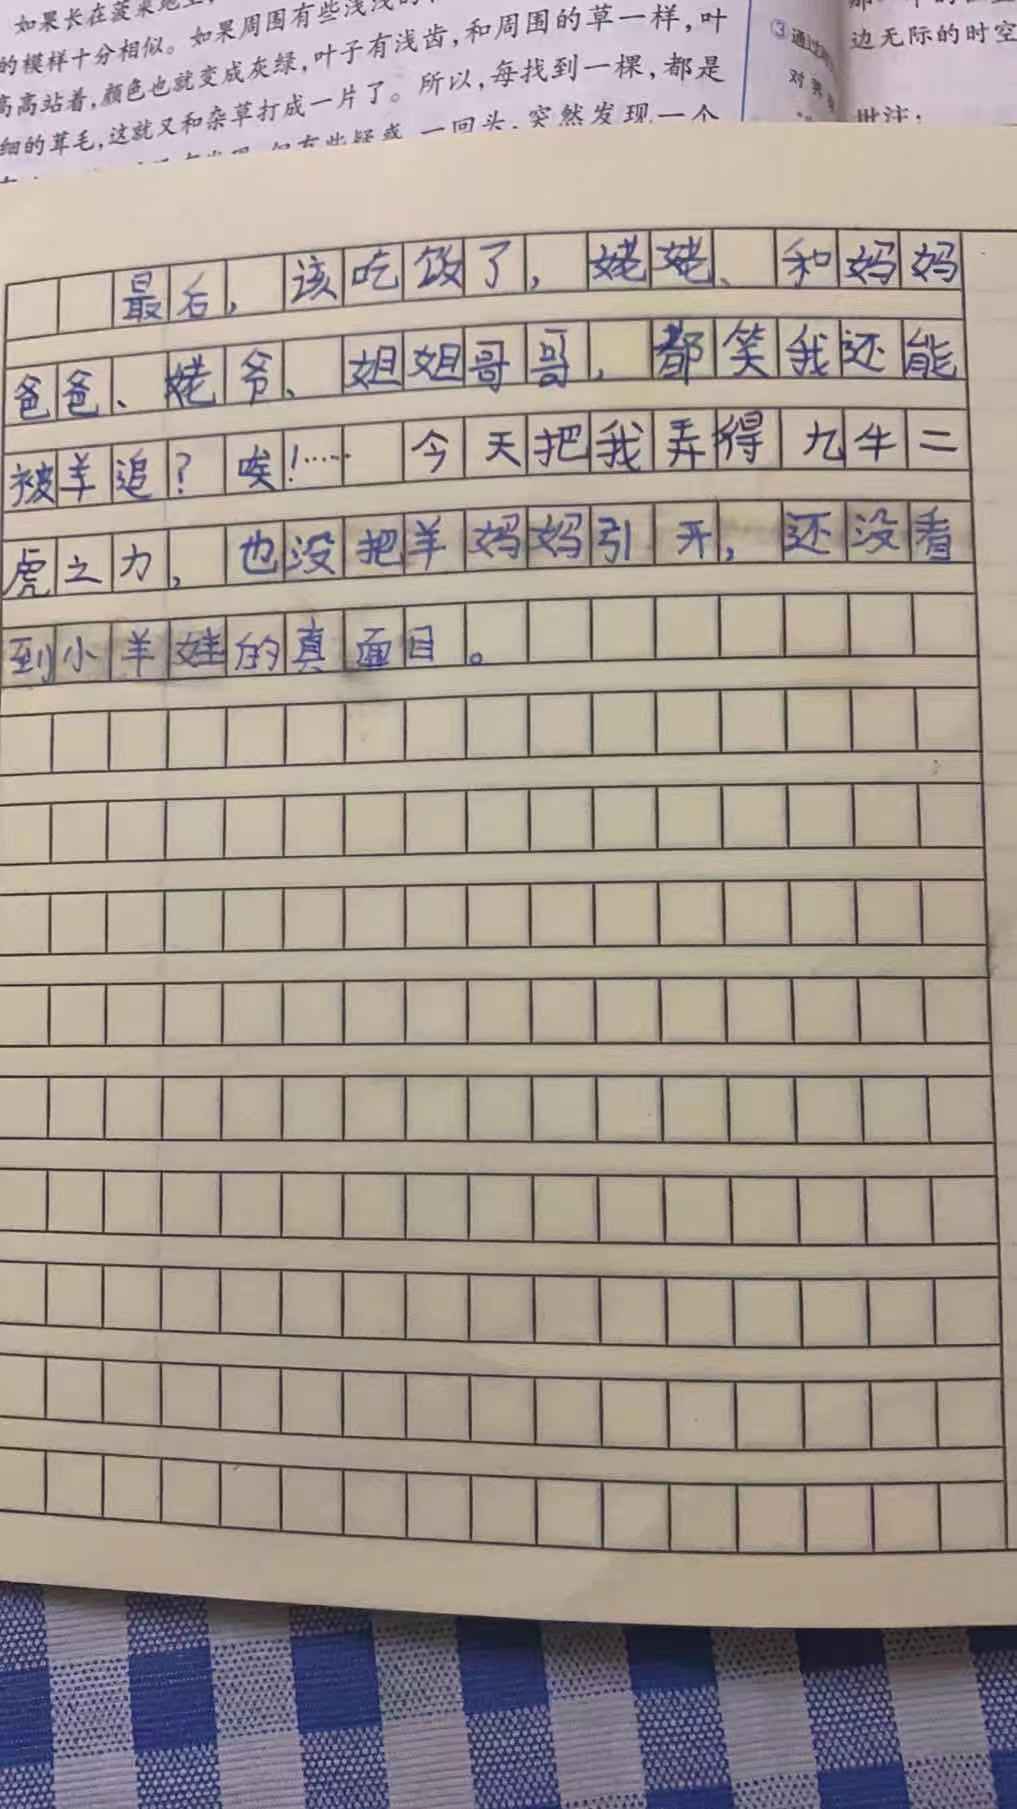 如果长在菠菜地里,
的模样十分相似。如果周围有些浅浅的
高高站着,颜色也就变成灰绿,叶子有浅齿,和周围的草一样,叶
细的茸毛,这就又和杂草打成一片了。所以,每找到一棵,都是
但有些疑惑,一回头,突然发现一个
③通过
对
边无际的时空
批注:
最后,该吃饭了,姥姥、和妈妈
爸爸、姥爷、姐姐哥哥,都笑我还能
被羊追?唉!…… 今天把我弄得九牛二
虎之力,也没把羊妈妈引开,还没看
到小羊娃的真面目。